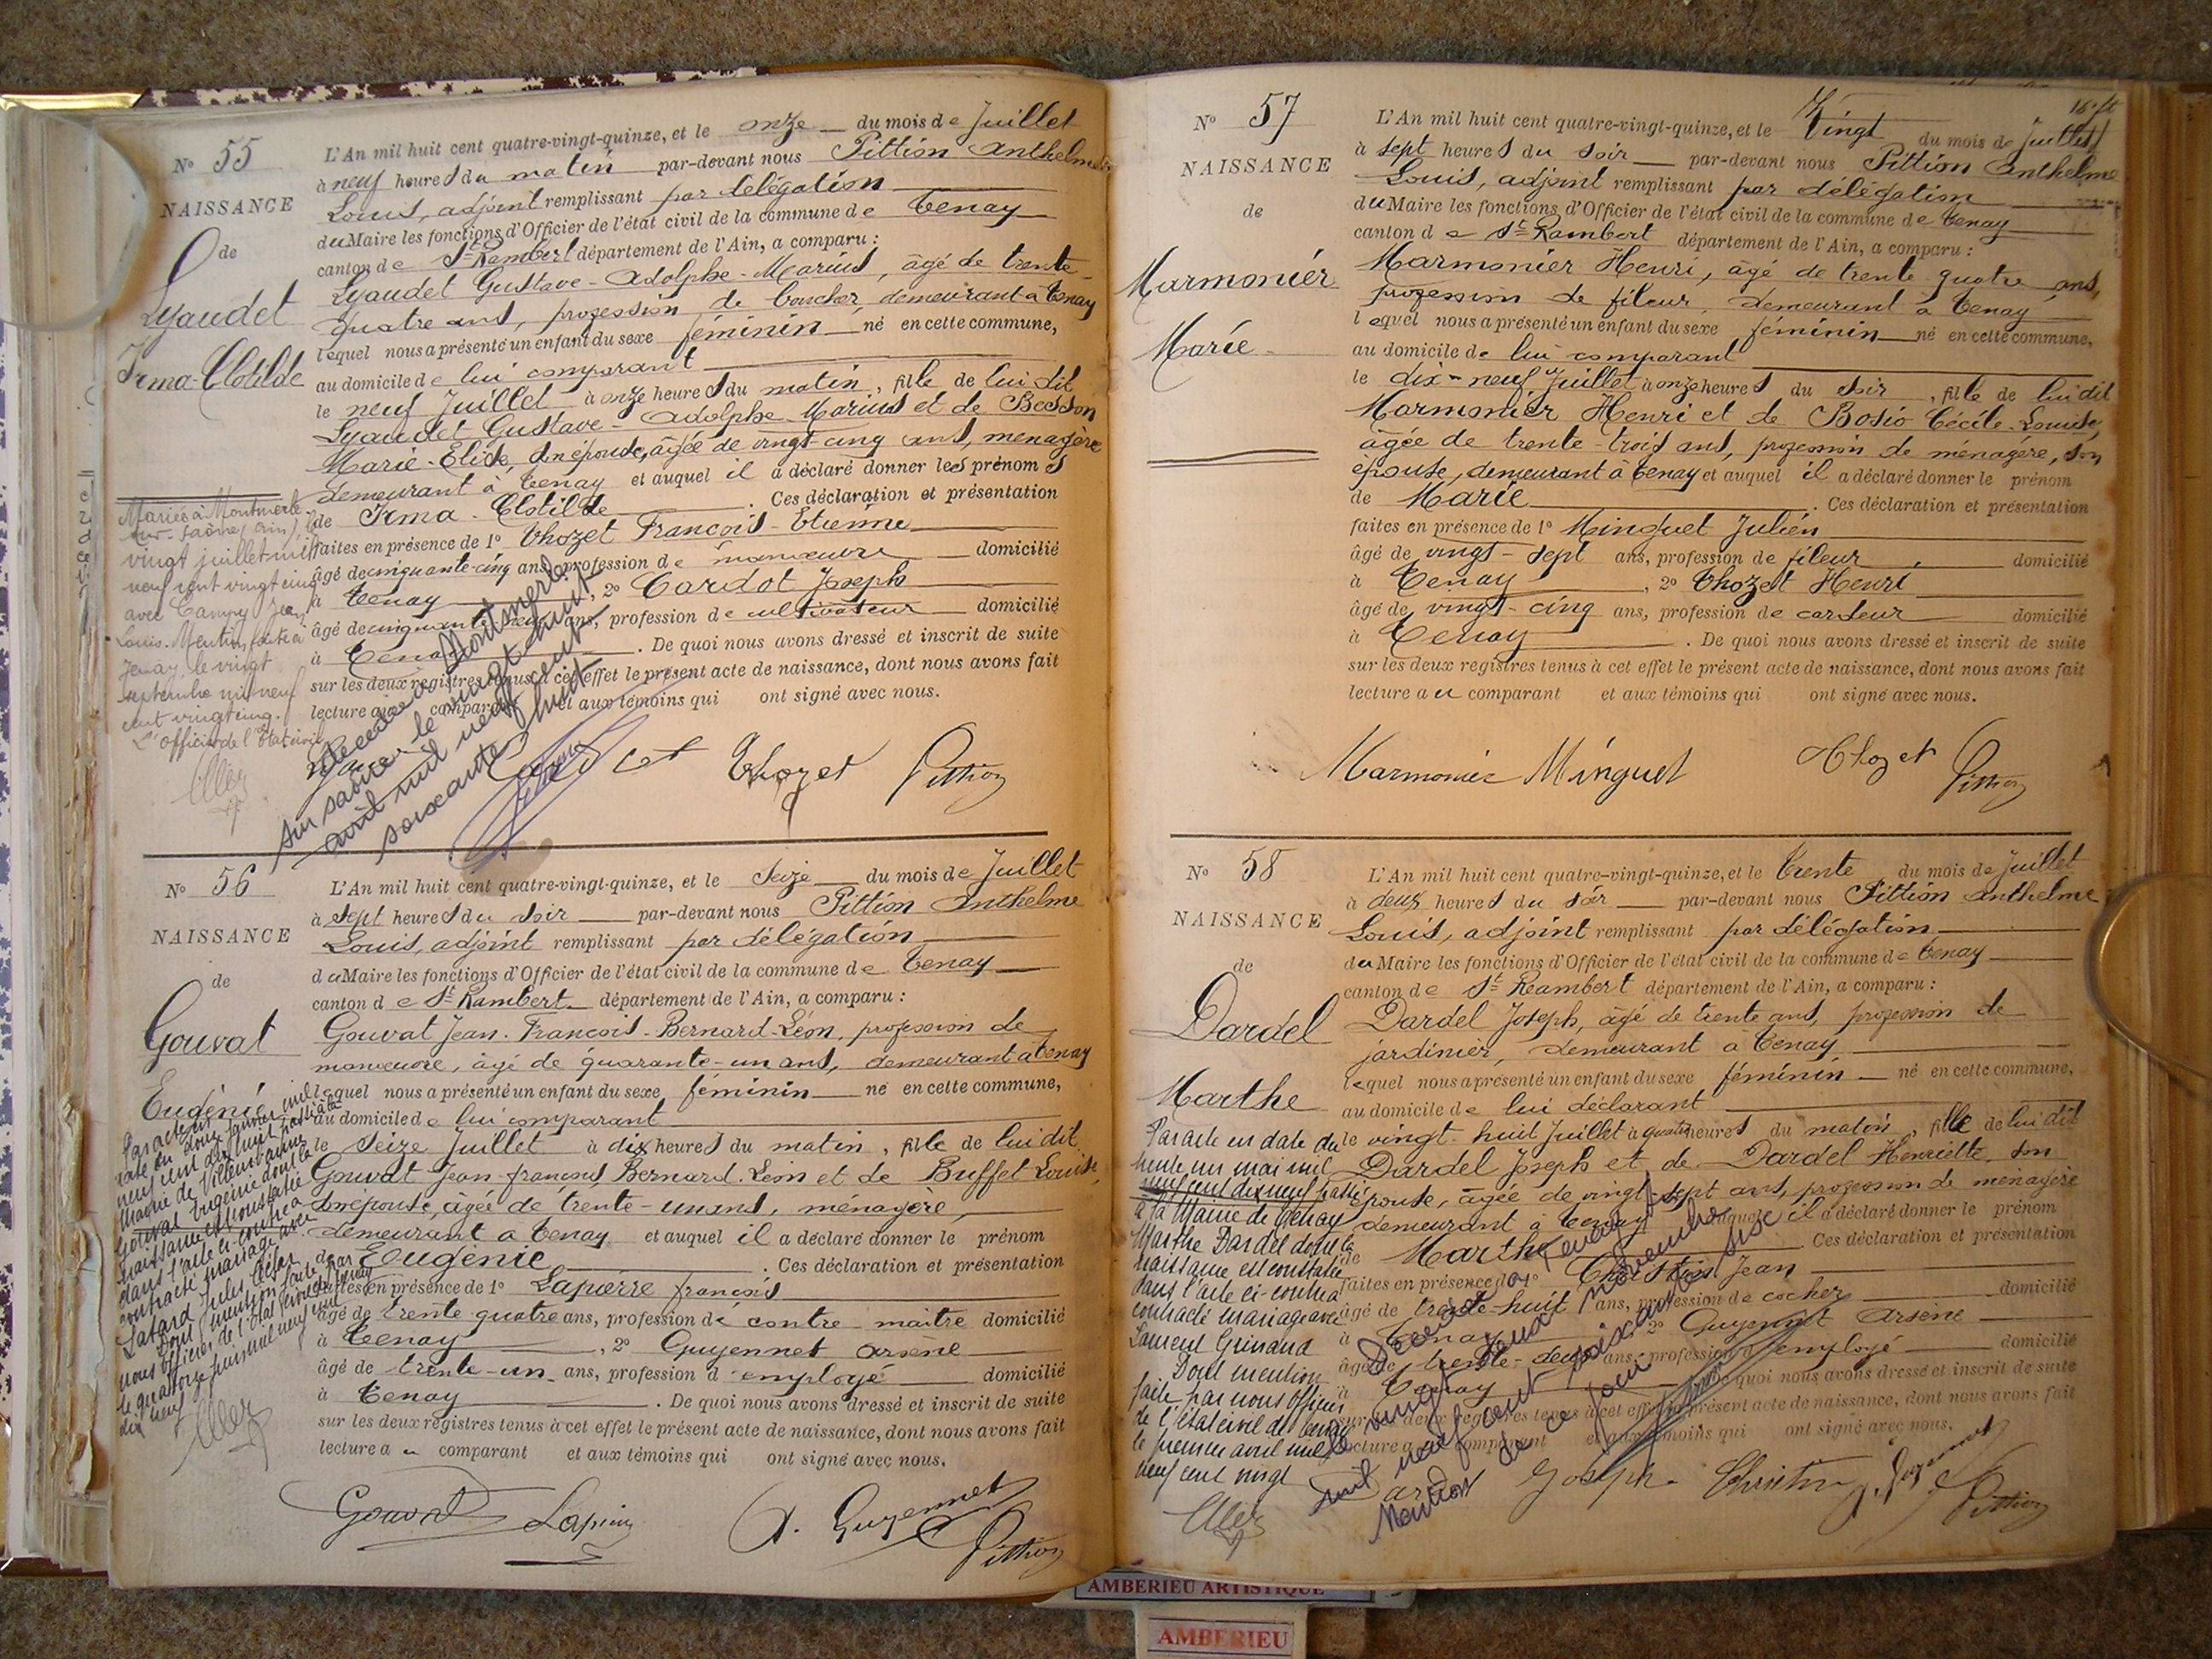 N° 55
NAISSANCE
de
Lyaudet
Irma-Clotilde
L'An mil huit cent quatre-vingt-quinze, et le onze du mois de Juillet
à neuf heures du matin par-devant nous Pittion Anthelme
Louis, adjoint remplissant par délégation
du Maire les fonctions d'Officier de l'état civil de la commune de Tenay
canton de St Rambert département de l'Ain, a comparu :
Lyaudet Gustave-Adolphe-Marius, âgé de trente-
quatre ans, profession de boucher, demeurant à Tenay
lequel nous a présenté un enfant du sexe féminin né en cette commune,
au domicile de lui comparant
le neuf Juillet à onze heures du matin, fille de lui dit
Lyaudet Gustave-Adolphe-Marius et de Besson
Marie-Elise, son épouse, âgée de vingt-cinq ans, menagère
demeurant à Tenay et auquel il a déclaré donner les prénoms
de Irma-Clotilde. Ces déclaration et présentation
faites en présence de 1° Thozet François-Etienne
âgé de cinquante-cinq ans, profession de manœuvre domicilié
à Tenay, 2° Cardot Joseph
âgé de cinquante ans, profession de cultivateur domicilié
à Tenay. De quoi nous avons dressé et inscrit de suite
sur les deux registres tenus à cet effet le présent acte de naissance, dont nous avons fait
lecture au comparant et aux témoins qui ont signé avec nous.
Mariée à Montmerle-
sur-Saône (Ain) le
vingt juillet mil
neuf cent vingt cinq
avec
Louis. Mention faite à
Tenay, le vingt
septembre mil neuf
cent vingt cinq.
L'officier de l'Etat civil
Décédée à Montmerle
sur Saône le vingt huit
avril mil neuf cent
soixante huit
Thozet Pittion
N° 56
NAISSANCE
de
Gouvat
Eugénie
L'An mil huit cent quatre-vingt-quinze, et le seize du mois de Juillet
à sept heures du soir par-devant nous Pittion Anthelme
Louis, adjoint remplissant par délégation
du Maire les fonctions d'Officier de l'état civil de la commune de Tenay
canton de St Rambert département de l'Ain, a comparu :
Gouvat Jean-François-Bernard-Léon, profession de
manœuvre, âgé de quarante-un ans, demeurant à Tenay
lequel nous a présenté un enfant du sexe féminin né en cette commune,
au domicile de lui comparant
le seize Juillet à dix heures du matin, fille de lui dit
Gouvat Jean-françois Bernard-Léon et de Buffet Louise,
son épouse, âgée de trente-un ans, ménagère,
demeurant à Tenay et auquel il a déclaré donner le prénom
de Eugénie. Ces déclaration et présentation
faites en présence de 1° Lapierre françois
âgé de trente quatre ans, profession de contre-maître domicilié
à Tenay, 2° Guyennet Arsène
âgé de trente-un ans, profession d'employé domicilié
à Tenay. De quoi nous avons dressé et inscrit de suite
sur les deux registres tenus à cet effet le présent acte de naissance, dont nous avons fait
lecture au comparant et aux témoins qui ont signé avec nous.
Par acte en
date du douze janvier mil
neuf cent dix huit passé à la
Mairie de Villeurbanne
Gouvat Eugénie dont la
naissance est constatée
dans l'acte ci-contre a
contracté mariage avec
Jules
Dont mention faite par
nous officier de l'état civil de Tenay
le quatorze juin mil neuf cent
dix neuf
Gouvat Lapierre A. Guyennet Pittion
N° 57
NAISSANCE
de
Marmonier
Marie
L'An mil huit cent quatre-vingt-quinze, et le Vingt du mois de Juillet
à sept heures du soir par-devant nous Pittion Anthelme
Louis, adjoint remplissant par délégation
du Maire les fonctions d'Officier de l'état civil de la commune de Tenay
canton de St Rambert département de l'Ain, a comparu :
Marmonier Henri, âgé de trente quatre ans,
profession de fileur, demeurant à Tenay
lequel nous a présenté un enfant du sexe féminin né en cette commune,
au domicile de lui comparant
le dix-neuf Juillet à onze heures du soir, fille de lui dit
Marmonier Henri et de Bosio Cécile-Louise,
âgée de trente-trois ans, profession de ménagère, son
épouse, demeurant à Tenay et auquel il a déclaré donner le prénom
de Marie. Ces déclaration et présentation
faites en présence de 1° Minguet Julien
âgé de vingt-sept ans, profession de fileur domicilié
à Tenay, 2° Thozet Henri
âgé de vingt-cinq ans, profession de cardeur domicilié
à Tenay. De quoi nous avons dressé et inscrit de suite
sur les deux registres tenus à cet effet le présent acte de naissance, dont nous avons fait
lecture au comparant et aux témoins qui ont signé avec nous.
Marmonier Minguet Thozet Pittion
N° 58
NAISSANCE
de
Dardel
Marthe
L'An mil huit cent quatre-vingt-quinze, et le trente du mois de Juillet
à deux heures du soir par-devant nous Pittion Anthelme
Louis, adjoint remplissant par délégation
du Maire les fonctions d'Officier de l'état civil de la commune de Tenay
canton de St Rambert département de l'Ain, a comparu :
Dardel Joseph, âgé de trente ans, profession de
jardinier, demeurant à Tenay
lequel nous a présenté un enfant du sexe féminin né en cette commune,
au domicile de lui déclarant
le vingt-huit Juillet à quatre heures du matin, fille de lui dit
Dardel Joseph et de Dardel Henriette, son
épouse, âgée de vingt-sept ans, profession de ménagère
demeurant à Tenay et auquel il a déclaré donner le prénom
de Marthe. Ces déclaration et présentation
faites en présence de 1° Christin Jean
âgé de trente-huit ans, profession de cocher domicilié
à Tenay, 2° Guyennet Arsène
âgé de trente-deux ans, profession d'employé domicilié
à Tenay. De quoi nous avons dressé et inscrit de suite
sur les deux registres tenus à cet effet le présent acte de naissance, dont nous avons fait
lecture au comparant et aux témoins qui ont signé avec nous.
Par acte en date du
trente un mai mil
neuf cent dix neuf passé
à la Mairie de Tenay
Marthe Dardel dont la
naissance est constatée
dans l'acte ci-contre a
contracté mariage avec
Laurent Guinand
Dont mention
faite par nous officier
de l'état civil de Tenay
le premier avril mil
neuf cent vingt
Décédée à Tenay
le vingt deux novembre
mil neuf cent soixante six
Mention de ce jour
Dardel Joseph Christin A. Guyennet Pittion
AMBERIEU ARTISTIQUE
AMBERIEU